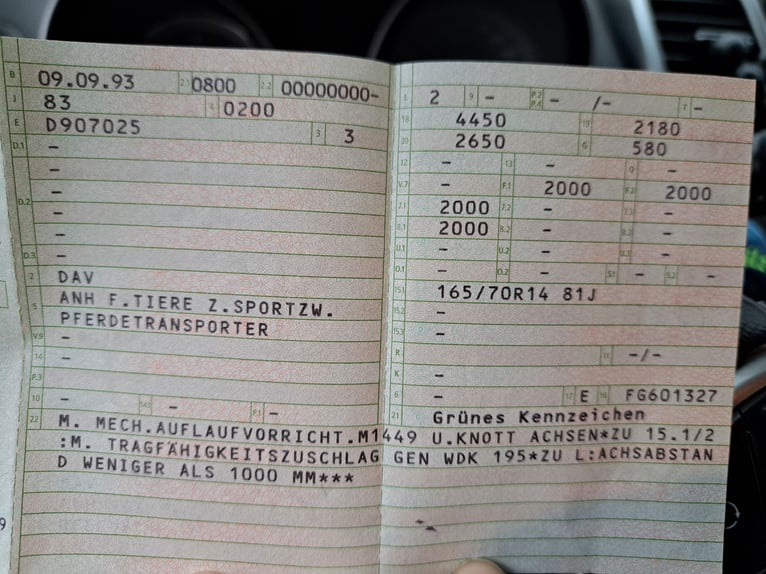 B 09.09.93 2.1 0800 2.2 00000000-
J 83 4 0200
E D907025 3 3
D.1 -
-
D.2 -
-
-
D.3 -
2 DAV
5 ANH F.TIERE Z.SPORTZW.
PFERDETRANSPORTER
V.9 -
14 -
P.3 -
10 - - P.1 -
L 2 9 - P.2 P.4 - /- T -
18 4450 19 2180
20 2650 G 580
12 - 13 - Q -
V.7 - F.1 2000 F.2 2000
7.1 2000 7.2 - 7.3 -
8.1 2000 8.2 - 8.3 -
U.1 - U.2 - U.3 -
O.1 - O.2 - S.1 - S.2 -
15.1 165/70R14 81J
15.2 -
15.3 -
R 11 -/-
K -
6 - 17 E 16 FG601327
21 Grünes Kennzeichen
22 M. MECH.AUFLAUFVORRICHT.M1449 U.KNOTT ACHSEN*ZU 15.1/2
:M. TRAGFÄHIGKEITSZUSCHLAG GEN WDK 195*ZU L:ACHSABSTAN
D WENIGER ALS 1000 MM***